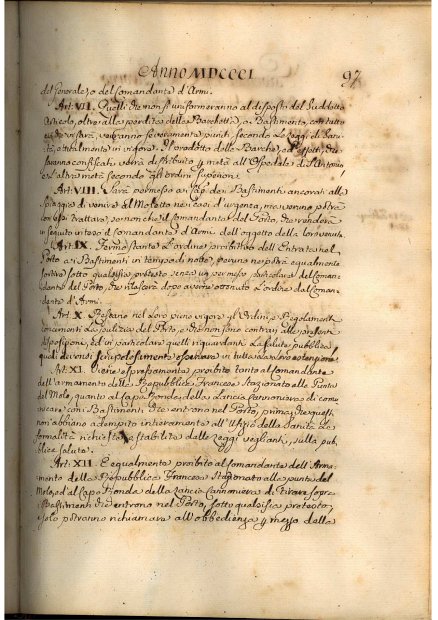 Anno MDCCCI 97
del Generale, o del Comandante d'Armi.
Art. VII. Quelli che non si uniformeranno al disposto del suddetto
Articolo, oltre alla perdita delle Barchette, o Bastimento, con tutto
verranno severamente puniti, secondo le Leggi di Sani-
tà, attualmente in vigore. Il prodotto delle Barche, ed effetti, che
saranno confiscati verrà distribuito p metà all'Ospedale di S. Antonio
e l'altra metà secondo gli ordini superiori.
Art. VIII. Sarà permesso ai Cap. dei Bastimenti ancorati alle
Spiaggie di venire al Moletto nei casi d'urgenza, ma veruno potrà
con essi trattare, se non che il Comandante del Porto, che renderà
in seguito inteso il Comandante d'Armi dell'oggetto della loro venuta.
Art. IX. Fermo stante l'ordine proibitivo dell'Entrata nel
Porto ai Bastimenti in tempo di notte, veruno ne potrà egualmente
sortire sotto qualsisia pretesto senza un permesso particolare del Coman-
dante del Porto, che rilascerà dopo averne ottenuto l'ordine dal Coman-
dante d'Armi.
Art. X. Restano nel loro pieno vigore gli Ordini, e Regolamenti
concernenti la pulizia del Porto, e che non sono contrari alla presente
disposizione, ed in particolare quelli riguardanti la salute pubblica
quali devonsi scrupolosamente osservare in tutta la loro estensione.
Art. XI. Viene espressamente proibito tanto al Comandante
dell'armamento della Repubblica Francese stazionato alla Punta
del Molo, quanto al Capo Ronda della Lancia Cannoniera di comu-
nicare con i Bastimenti che entrano nel Porto, prima, che questi
non abbiano adempito interamente all'Uffizio della Sanità le
formalità richieste, e stabilite dalle Leggi veglianti, sulla pub-
blica salute.
Art. XII. È egualmente proibito al Comandante dell'Arma-
mento della Repubblica Francese stazionato alla punta del
Molo, ed al Capo Ronda della Lancia Cannoniera di tirare sopra
i Bastimenti che entrono nel Porto, sotto qualsisia pretesto,
e solo potranno richiamare all'obbedienza p mezzo della